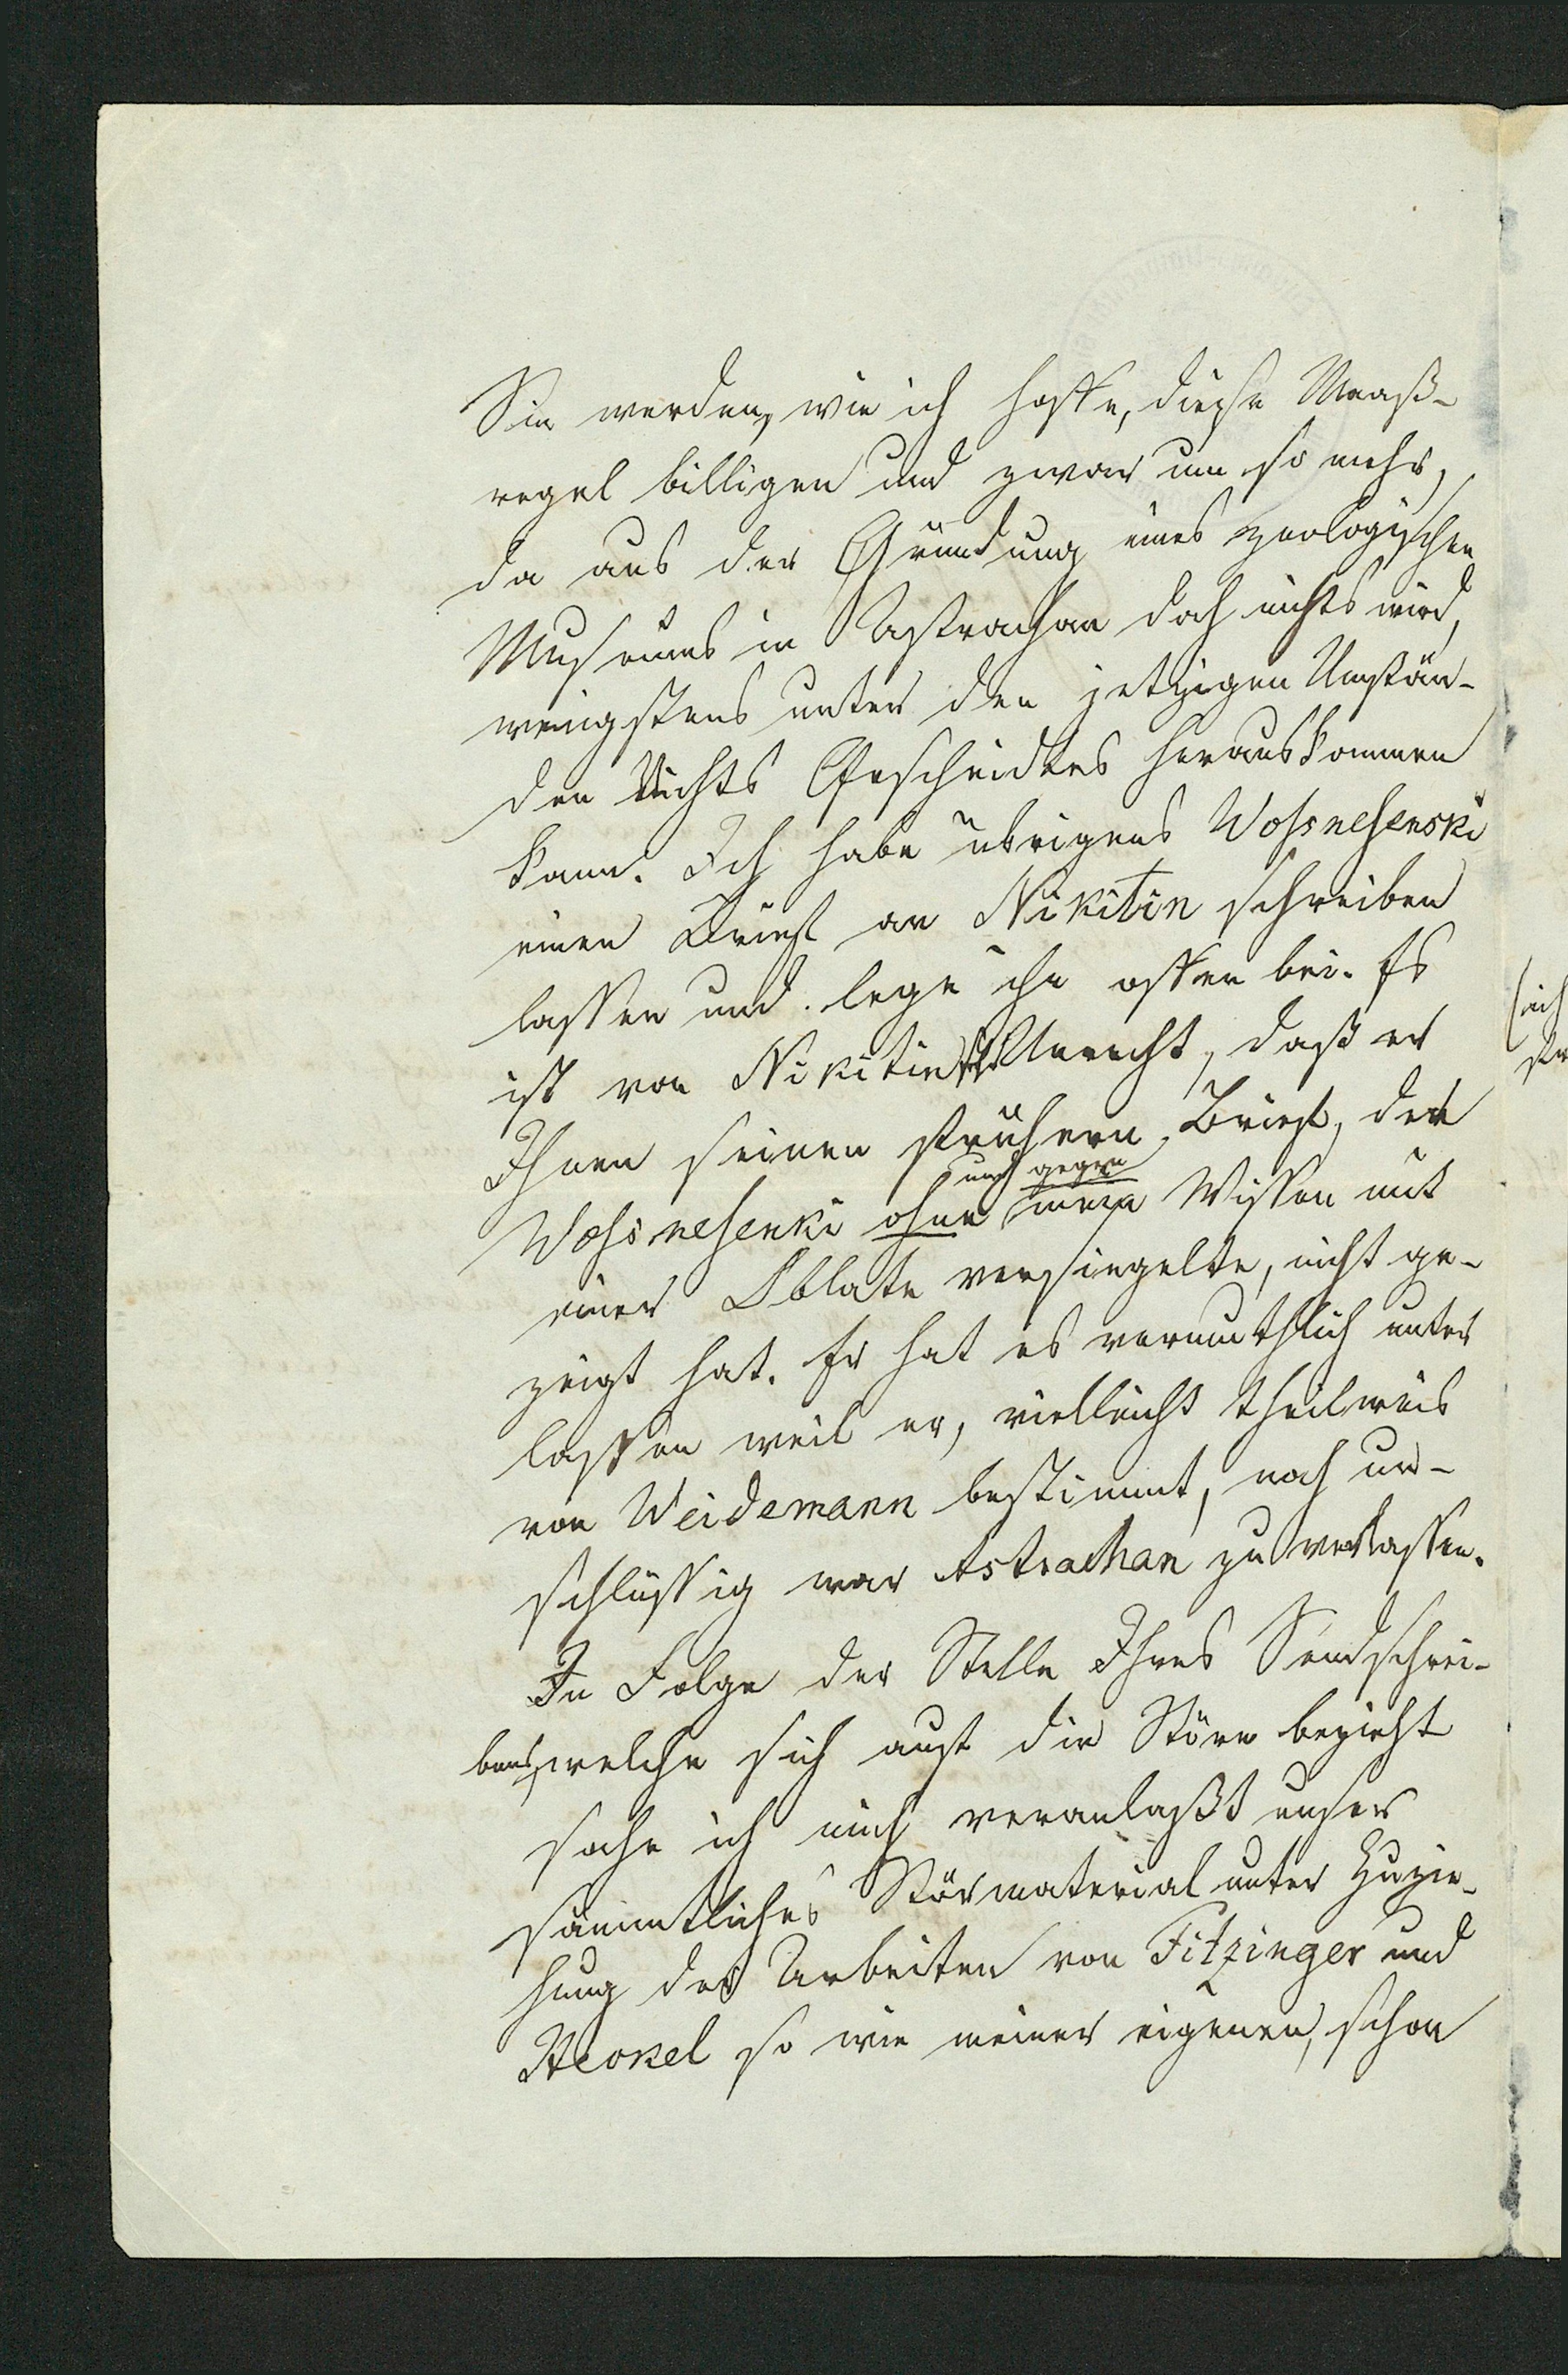 Sie werden, wie ich hoffe, diese Maaß-
regel billigen und zwar um so mehr,
da aus der Gründung eines zoologischen
Museums in Astrachan doch nichts wird,
wenigstens unter den jetzigen Umstän-
den Nichts Gescheidtes herauskommen
kann. Ich habe übrigens Wossnesenski
einen Brief an Nikitin schreiben
lassen und lege ihn offen bei. Es
ist von Nikitin Unrecht, daß er
Ihnen seinen frühern Brief, den
und gegen
Wossnesenki ohne mein Wissen mit
einer Oblate versiegelte, nicht ge-
zeigt hat. Er hat es vermuthlich unter
lassen weil er, vielleicht theilweis
von Weidemann bestimmt, noch un-
schlüssig war Astrachan zu verlassen.
In Folge der Stelle Ihres Sendschrei-
bens, welche sich auf die Störe bezieht
sahe ich mich veranlaßt unser
sämmtliches Störmaterial unter Zuzie-
hung der Arbeiten von Fitzinger und
Heckel so wie meiner eigenen, schon